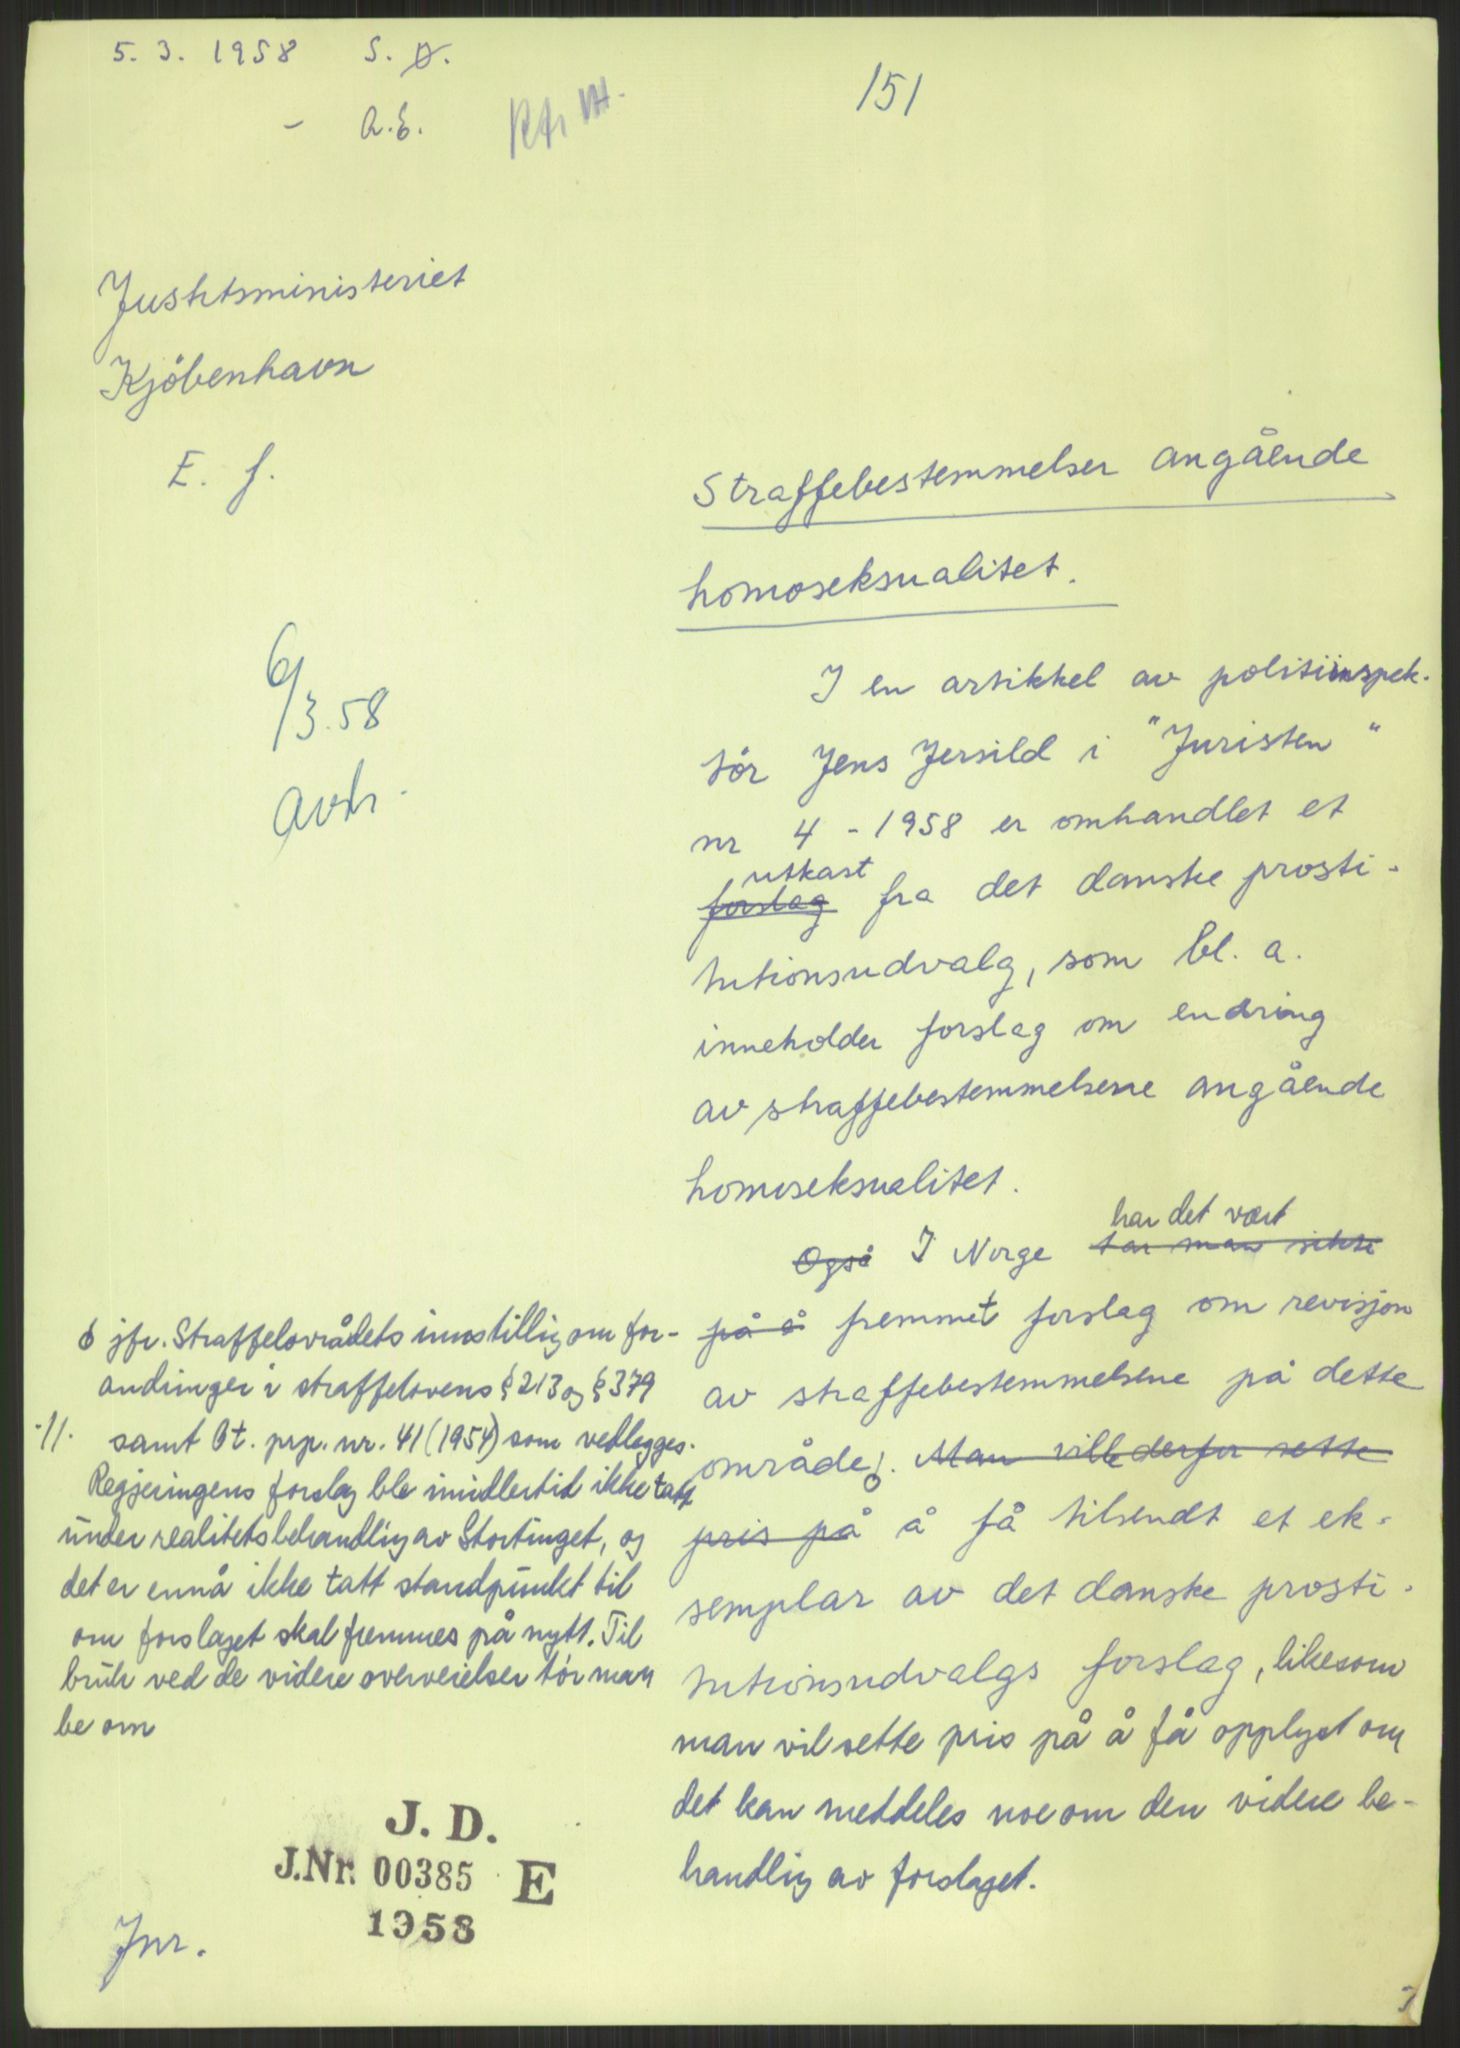 5. 3. 1958 S. D.
- A.E.
151
Justitsministeriet
Kjöbenhavn
E. f.
6/3.58
Straffebestemmelser angående
homoseksualitet.
I en artikkel av politiinspek-
tör Jens Jersild i "Juristen"
nr 4 - 1958 er omhandlet et
utkast
forslag fra det danske prosti-
tutionsudvalg, som bl. a.
inneholder forslag om endring
av straffebestemmelsene angående
homoseksualitet.
har det vært
Også I Norge har man ikke
på å fremmet forslag om revisjon
av straffebestemmelsene på dette
område. Man ville derfor sette
pris på å få tilsendt et ek-
semplar av det danske prosti-
tutionsudvalgs forslag, likesom
man vil sette pris på å få opplyst om
det kan meddeles noe om den videre be-
handling av forslaget.
jfr. Straffelovrådets innstilling om for-
andringer i straffelovens § 213 og § 379
./. samt Ot. prp. nr. 41 (1954) som vedlegges.
Regjeringens forslag ble imidlertid ikke tatt
under realitetsbehandling av Stortinget, og
det er ennå ikke tatt standpunkt til
om forslaget skal fremmes på nytt. Til
bruk ved de videre overveielser tör man
be om
J. D.
J.Nr. 00385 E
1958
Jnr.